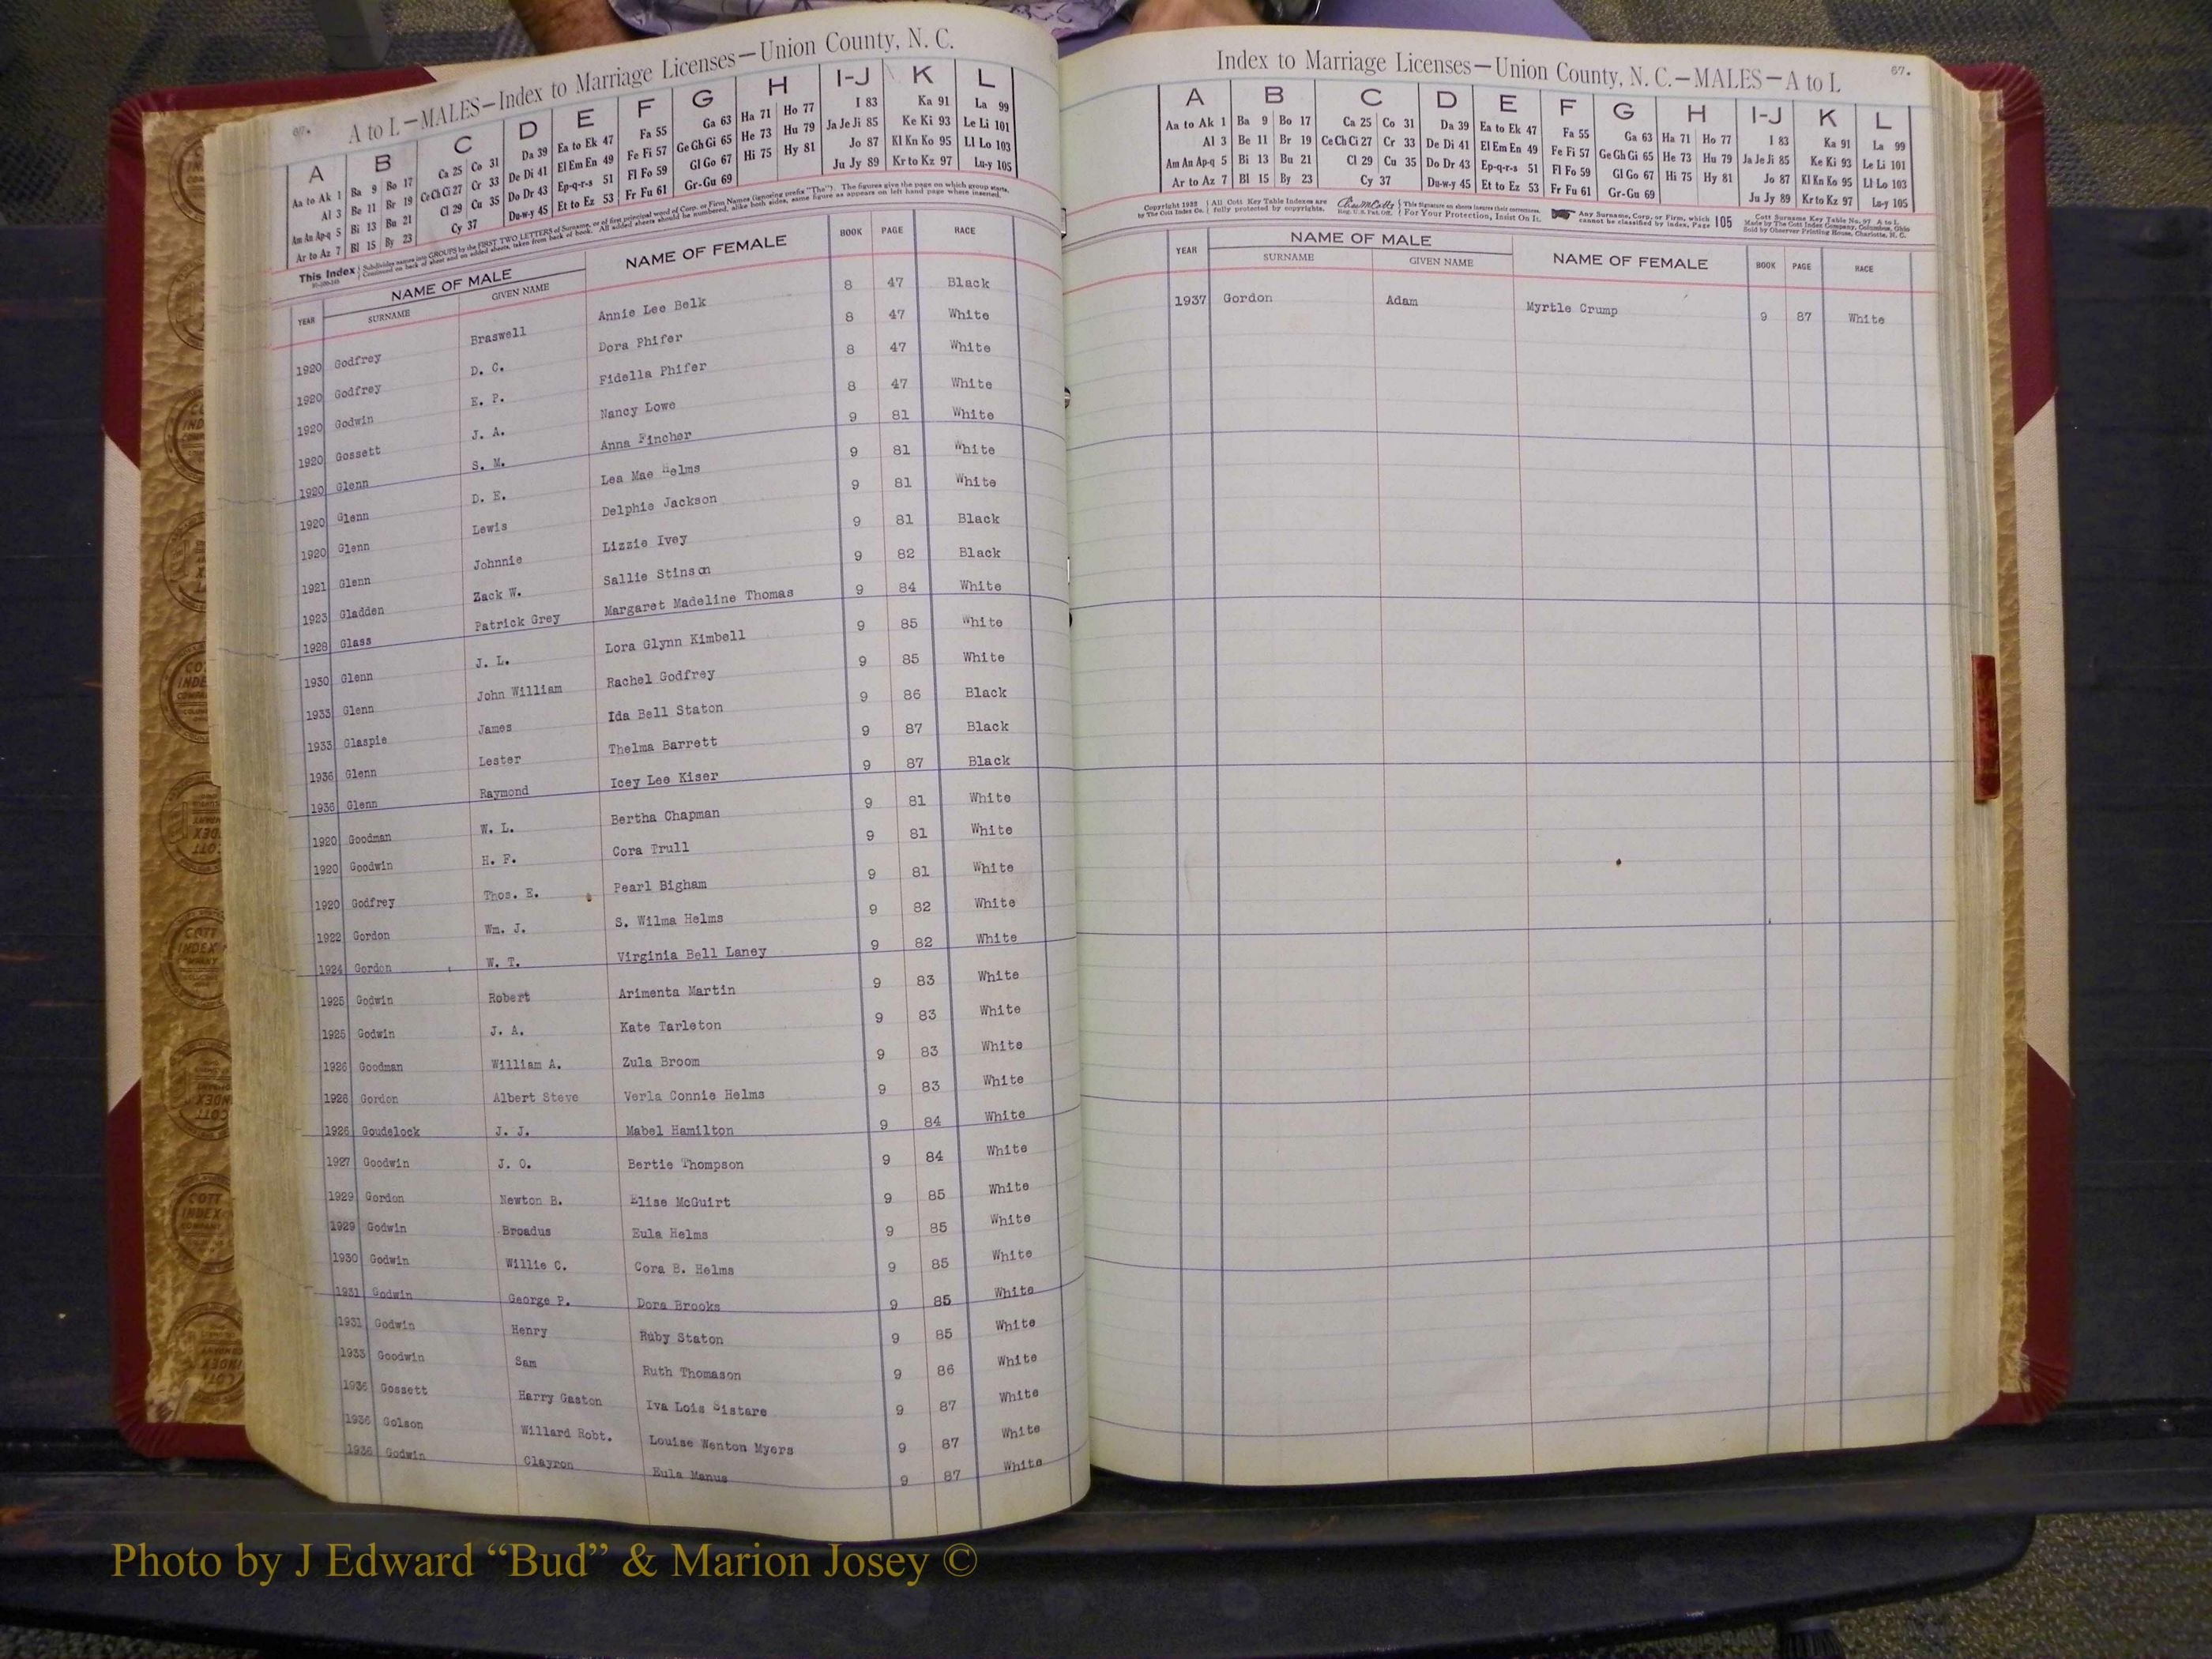 67.
A to L—MALES—Index to Marriage Licenses—Union County, N. C.
A B C D E F G H I-J K L
Aa to Ak 1 Ba 9 Bo 17 Ca 25 Co 31 Da 39 Ea to Ek 47 Fa 55 Ga 63 Ha 71 Ho 77 I 83 Ka 91 La 99
Al 3 Be 11 Br 19 Ce Ch Ci 27 Cr 33 De Di 41 El Em En 49 Fe Fi 57 Ge Gh Gi 65 He 73 Hu 79 Ja Je Ji 85 Ke Ki 93 Le Li 101
Am An Ap-q 5 Bi 13 Bu 21 Cl 29 Cu 35 Do Dr 43 Ep-q-r-s 51 Fl Fo 59 Gl Go 67 Hi 75 Hy 81 Jo 87 Kl Kn Ko 95 Ll Lo 103
Ar to Az 7 Bl 15 By 23 Cy 37 Du-w-y 45 Et to Ez 53 Fr Fu 61 Gr-Gu 69 Ju Jy 89 Kr to Kz 97 Lu-y 105
This Index Subdivides names into GROUPS by the FIRST TWO LETTERS of Surname, or of first principal word of Corp. or Firm Names (ignoring prefix "The"). The figures give the page on which group starts.
Continued on back of sheet and on added sheets, taken from back of book. All added sheets should be numbered, alike both sides, same figure as appears on left hand page where inserted.
YEAR NAME OF MALE NAME OF FEMALE BOOK PAGE RACE
SURNAME GIVEN NAME
1920 Godfrey Braswell Annie Lee Belk 8 47 Black
1920 Godfrey D. C. Dora Phifer 8 47 White
1920 Godwin E. P. Fidella Phifer 8 47 White
1920 Gossett J. A. Nancy Lowe 8 47 White
1920 Glenn S. M. Anna Fincher 9 81 White
1920 Glenn D. E. Lea Mae Helms 9 81 White
1920 Glenn Lewis Delphie Jackson 9 81 White
1921 Glenn Johnnie Lizzie Ivey 9 81 Black
1923 Gladden Zack W. Sallie Stinson 9 82 Black
1928 Glass Patrick Grey Margaret Madeline Thomas 9 84 White
1930 Glenn J. L. Lora Glynn Kimbell 9 85 White
1933 Glenn John William Rachel Godfrey 9 85 White
1933 Glaspie James Ida Bell Staton 9 86 Black
1936 Glenn Lester Thelma Barrett 9 87 Black
1936 Glenn Raymond Icey Lee Kiser 9 87 Black
1920 Goodman W. L. Bertha Chapman 9 81 White
1920 Goodwin H. F. Cora Trull 9 81 White
1920 Godfrey Thos. E. Pearl Bigham 9 81 White
1922 Gordon Wm. J. S. Wilma Helms 9 82 White
1924 Gordon W. T. Virginia Bell Laney 9 82 White
1925 Godwin Robert Arimenta Martin 9 83 White
1925 Godwin J. A. Kate Tarleton 9 83 White
1926 Goodman William A. Zula Broom 9 83 White
1926 Gordon Albert Steve Verla Connie Helms 9 83 White
1926 Goudelock J. J. Mabel Hamilton 9 84 White
1927 Goodwin J. O. Bertie Thompson 9 84 White
1929 Gordon Newton B. Elise McGuirt 9 85 White
1929 Godwin Broadus Eula Helms 9 85 White
1930 Godwin Willie C. Cora B. Helms 9 85 White
1931 Godwin George P. Dora Brooks 9 85 White
1931 Godwin Henry Ruby Staton 9 85 White
1933 Goodwin Sam Ruth Thomason 9 86 White
1936 Gossett Harry Gaston Iva Lois Sistare 9 87 White
1936 Golson Willard Robt. Louise Wenton Myers 9 87 White
1936 Godwin Clayron Eula Manus 9 87 White
Index to Marriage Licenses—Union County, N. C.—MALES—A to L
67.
A B C D E F G H I-J K L
Aa to Ak 1 Ba 9 Bo 17 Ca 25 Co 31 Da 39 Ea to Ek 47 Fa 55 Ga 63 Ha 71 Ho 77 I 83 Ka 91 La 99
Al 3 Be 11 Br 19 Ce Ch Ci 27 Cr 33 De Di 41 El Em En 49 Fe Fi 57 Ge Gh Gi 65 He 73 Hu 79 Ja Je Ji 85 Ke Ki 93 Le Li 101
Am An Ap-q 5 Bi 13 Bu 21 Cl 29 Cu 35 Do Dr 43 Ep-q-r-s 51 Fl Fo 59 Gl Go 67 Hi 75 Hy 81 Jo 87 Kl Kn Ko 95 Ll Lo 103
Ar to Az 7 Bl 15 By 23 Cy 37 Du-w-y 45 Et to Ez 53 Fr Fu 61 Gr-Gu 69 Ju Jy 89 Kr to Kz 97 Lu-y 105
Copyright 1932 All Cott Key Table Indexes are This Signature on sheets insures their correctness. Any Surname, Corp. or Firm, which 105 Cott Surname Key Table No. 97 A to L
by The Cott Index Co. fully protected by copyrights. Reg. U.S. Pat. Off. For Your Protection, Insist On It. cannot be classified by index, Page Made by The Cott Index Company, Columbus, Ohio
Sold by Observer Printing House, Charlotte, N. C.
YEAR NAME OF MALE NAME OF FEMALE BOOK PAGE RACE
SURNAME GIVEN NAME
1937 Gordon Adam Myrtle Crump 9 87 White
Photo by J Edward “Bud” & Marion Josey ©